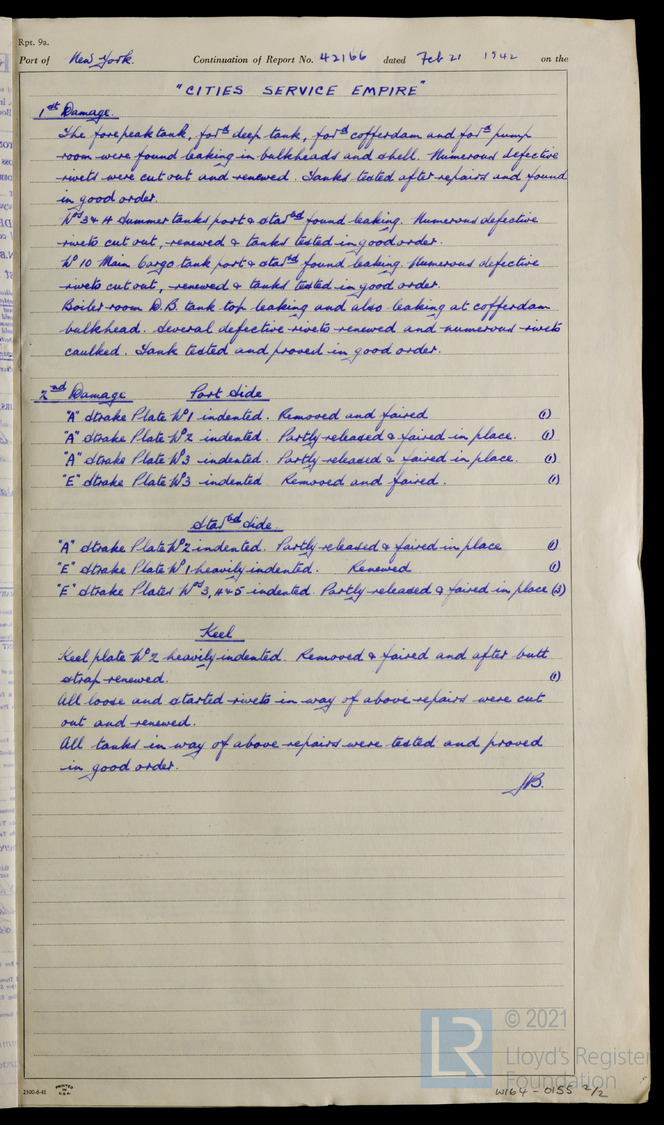 Rpt. 9a.
Port of New York. Continuation of Report No. 42166 dated Feb 21 1942 on the
"CITIES SERVICE EMPIRE"
1st Damage.
The forepeak tank, ford deep tank, ford cofferdam and ford pump
room were found leaking in bulkheads and shell. Numerous defective
rivets were cut out and renewed. Tanks tested after repairs and found
in good order.
Nos 3 & 4 Summer tanks port & starbd found leaking. Numerous defective
rivets cut out, renewed & tanks tested in good order.
No 10 Main Cargo tank port & starbd found leaking. Numerous defective
rivets cut out, renewed & tanks tested in good order.
Boiler room D.B. tank top leaking and also leaking at cofferdam
bulkhead. Several defective rivets renewed and numerous rivets
caulked. Tank tested and proved in good order.
2nd Damage Port Side
"A" Strake Plate No 1 indented. Removed and faired (1)
"A" Strake Plate No 2 indented. Partly released & faired in place. (1)
"A" Strake Plate No 3 indented. Partly released & faired in place. (1)
"E" Strake Plate No 3 indented Removed and faired. (1)
Starbd Side.
"A" Strake Plate No 2 indented. Partly released & faired in place (1)
"E" Strake Plate No 1 heavily indented. Renewed (1)
"E" Strake Plates Nos 3, 4 & 5 indented. Partly released & faired in place (3)
Keel
Keel plate No 2 heavily indented. Removed & faired and after butt
strap renewed. (1)
All loose and started rivets in way of above repairs were cut
out and renewed.
All tanks in way of above repairs were tested and proved
in good order.
© 2021
Lloyd's Register
Foundation
W164-0155 2/2
2100-6-41 PRINTED IN U.S.A.